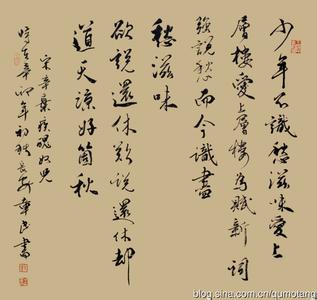 少年不識愁滋味愛上
層樓愛上層樓為賦新詞
強說愁而今識盡
愁滋味
欲說還休欲說還休却
道天涼好箇秋
宋辛棄疾醜奴兒
時在辛卯年初秋長安章民書
blog.sina.com.cn/qumotang